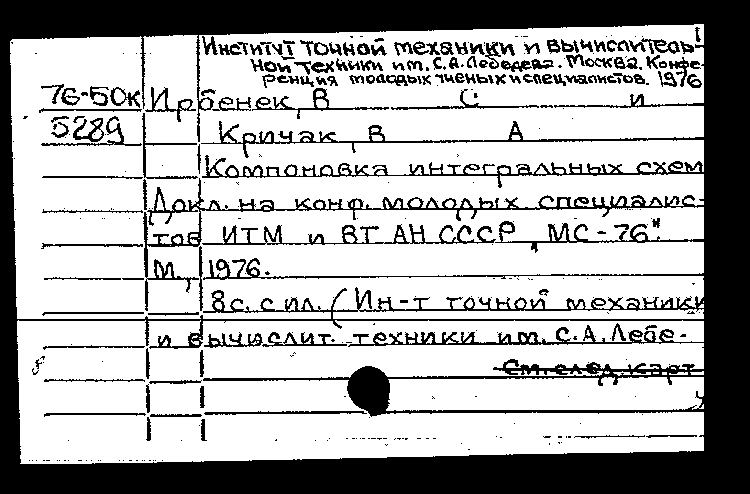 Институт точной механики и вычислитель-
ной техники им. С.А. Лебедева. Москва. Конфе-
ренция молодых ученых и специалистов. 1976
76-50к Ирбенек, В С и
5289 Кричак, В А
Компоновка интегральных схем
Докл. на конф. молодых специалис-
тов ИТМ и ВТ АН СССР „МС-76".
М., 1976.
8с. с ил. (Ин-т точной механики
и вычислит. техники им. С.А. Лебе-
См. след. карт